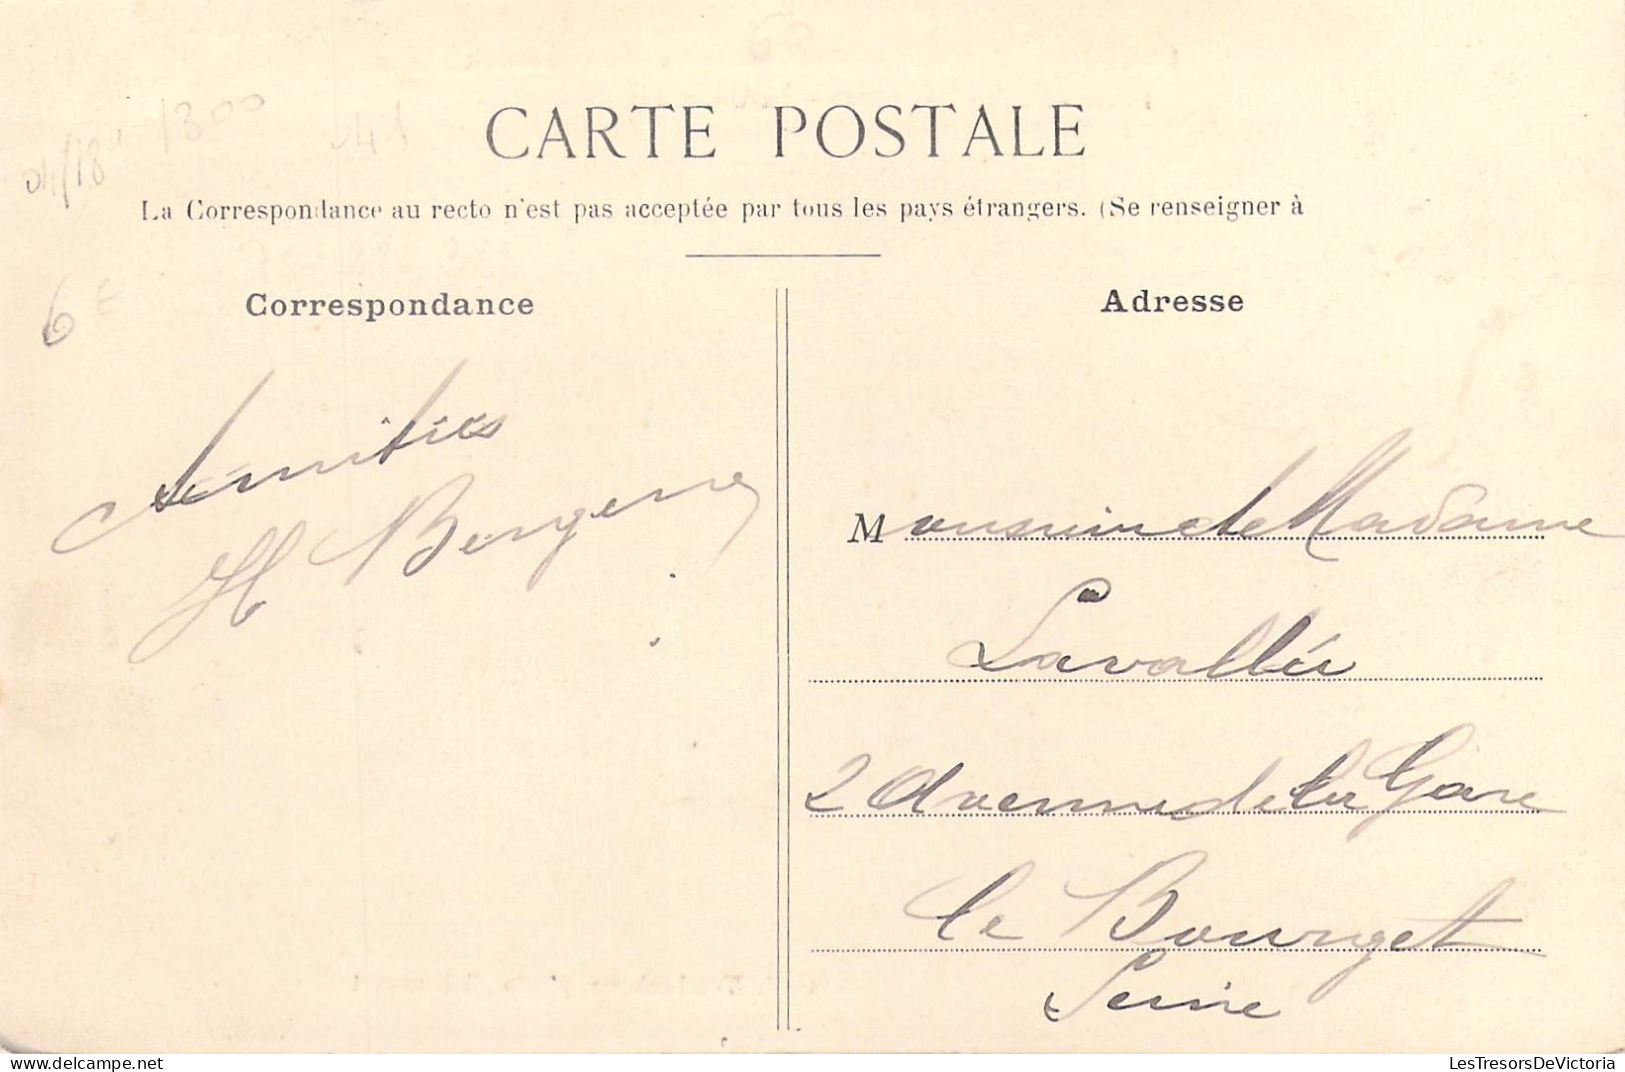 CARTE POSTALE
La Correspondance au recto n'est pas acceptée par tous les pays étrangers. (Se renseigner à
Correspondance
Adresse
6 E
Amitiés
H
Monsieur et Madame
Lavallée
2 Avenue de la Gare
le Bourget
Seine
LesTresorsDeVictoria
delcampe.net